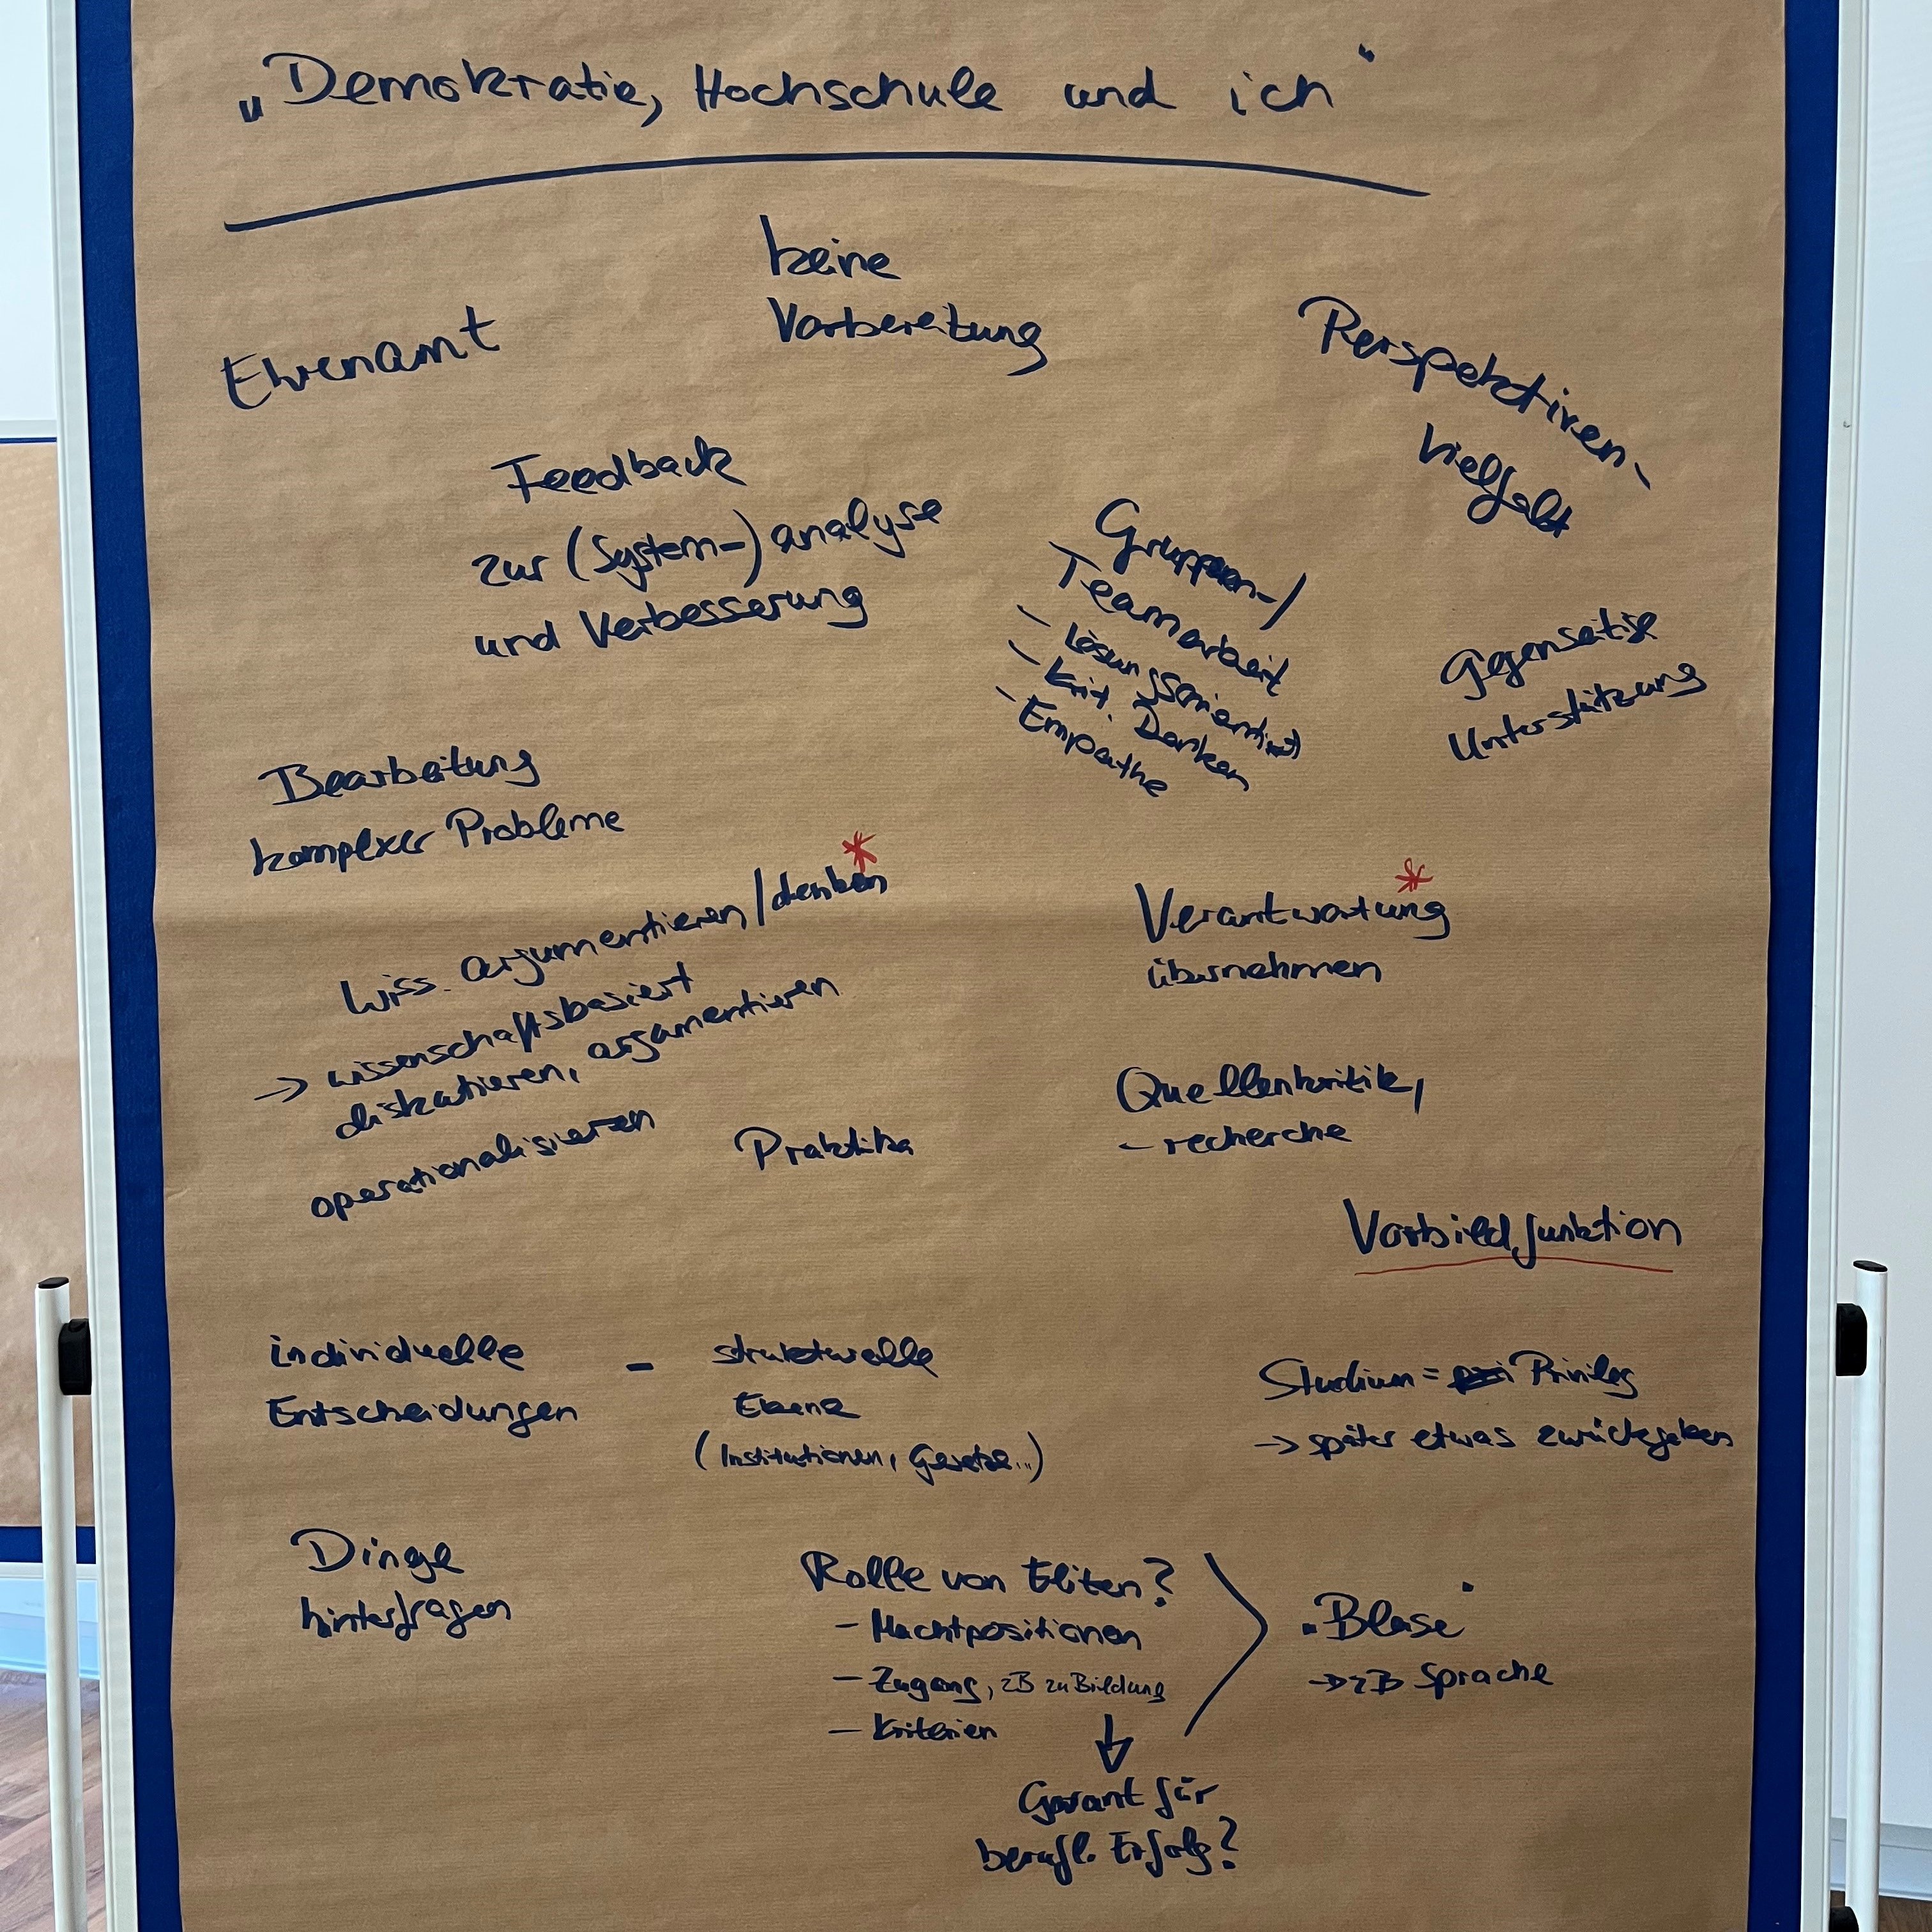 „Demokratie, Hochschule und ich“
keine
Vorbereitung
Ehrenamt
Perspektiven-
vielfalt
Feedback
zur (System-) analyse
und Verbesserung
Gruppen-/
Teamarbeit
- Lösungsorientiert
- krit. Denken
- Empathie
Gegenseitige
Unterstützung
Bearbeitung
komplexer Probleme
wiss. argumentieren/denken *
→ wissenschaftsbasiert
diskutieren, argumentieren
operationalisieren
Praktika
Verantwortung *
übernehmen
Quellenkritik,
- recherche
Vorbildfunktion
individuelle - strukturelle
Entscheidungen Ebene
(Institutionen, Gesetze..)
Studium = Privileg
→ später etwas zurückgeben
Dinge
hinterfragen
Rolle von Eliten?
- Machtpositionen
- Zugang, zB zu Bildung
- Kriterien
↓
Garant für
berufl. Erfolg?
„Blase“
→ zB Sprache